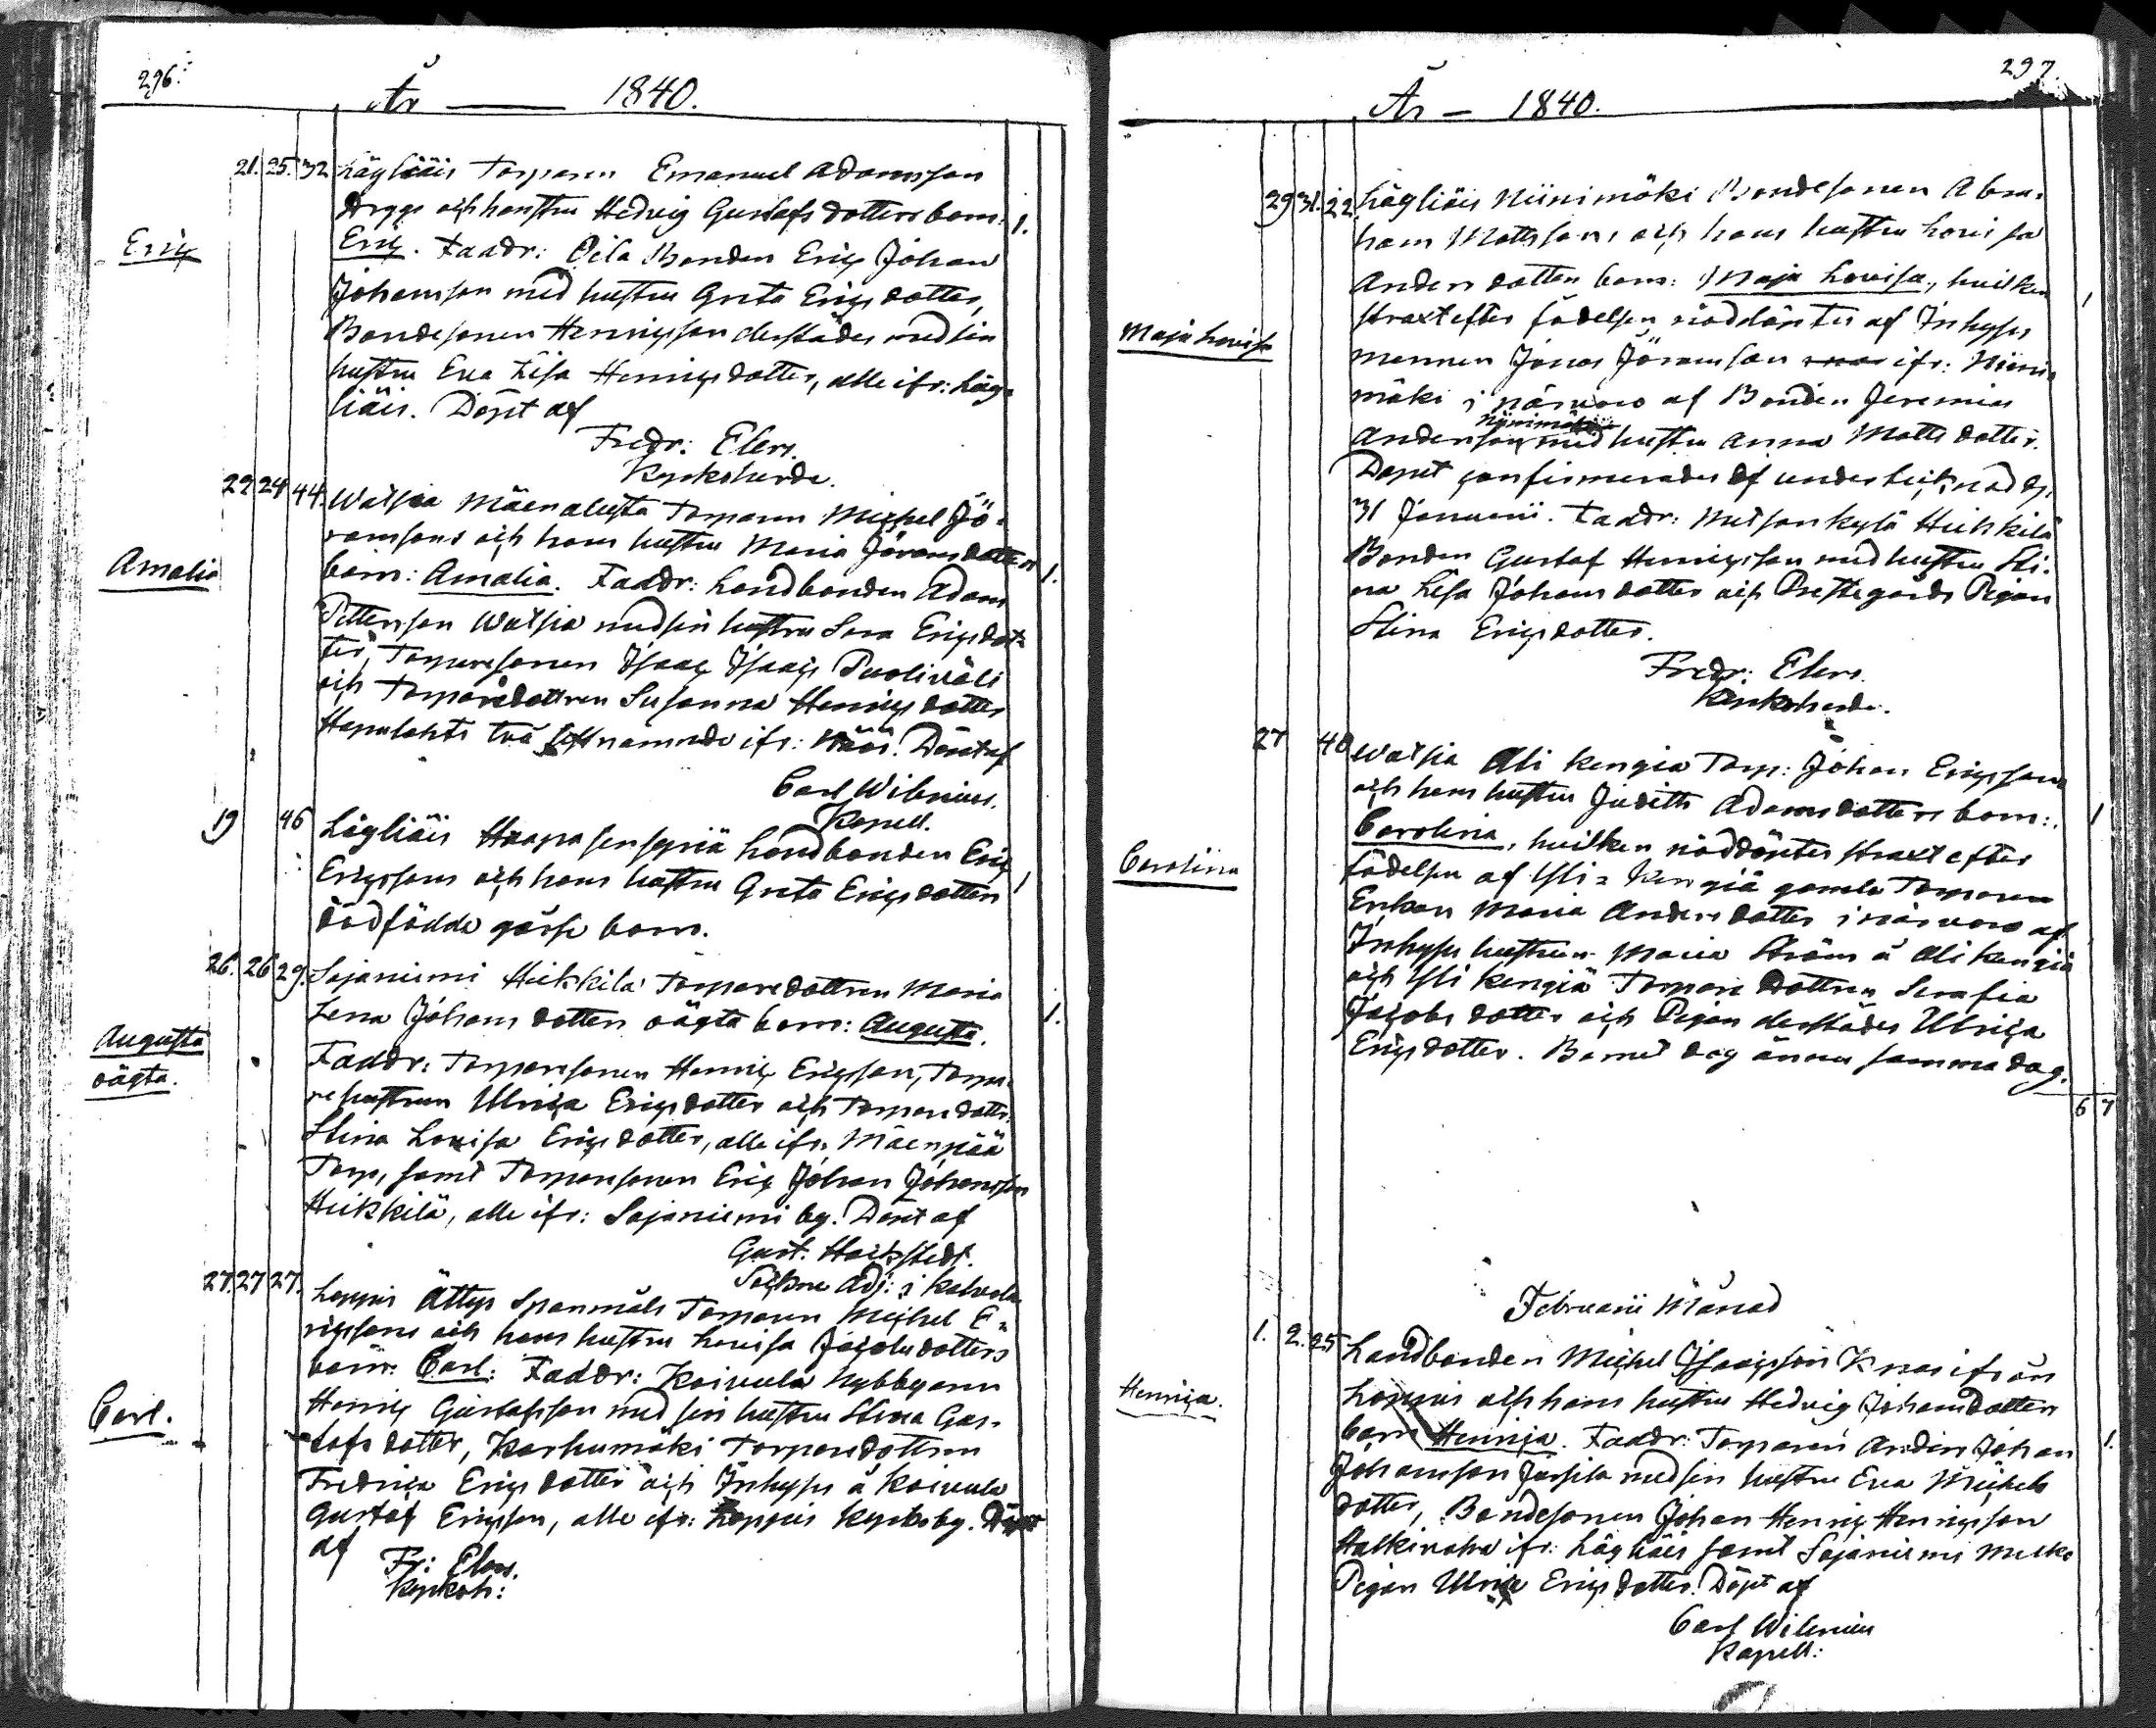 296.
År — 1840.
21. 25. 32 Lägliäis Torparen Emanuel Adamsson
och hustru Hedvig Gustafsdotters barn: 1.
Eric
Eric. Faddr: Pila Bonden Eric Johan
Johansson med hustru Greta Ericsdotter,
Bondesonen Henricsson derstädes med sin
hustru Eva Lisa Henricsdotter, alle ifr: Läg-
liäis. Döpt af
Fredr: Elers.
Kyrkoherde.
22 24 44. Watsia Mäenalusta Torparen Michel Jö-
ransons och hans hustru Maria Göransdotters
Amalia
barn: Amalia. Faddr: Landbonden Adam 1.
Petterson Watsia med sin hustru Sara Ericsdot-
ter, Torparesonen Isaac Isaacs Puoliväli
och Torparedottren Susanna Henricsdotter
Hapalahti två sistnämnde ifr: Räös. Döpt af
Carl Wilenius.
Kapell.
19 46 Lägliäis Haapasenpiä Landbonden Eric
Ericssons och hans hustru Greta Ericsdotters 1
dödfödde gosse barn.
26. 26 29. Sajaniemi Heikkilä Torparedottren Maria
Lena Johansdotters oägta barn: Augusta. 1.
Augusta
oägta.
Faddr: Torparesonen Henric Ericsson, Torpa-
re hustrun Ulrica Ericsdotter och Torparedottr:
Stina Lovisa Ericsdotter, alle ifr: Mäenpää
Torp, samt Torparesonen Eric Johan Johansson
Heikkilä, alle ifr: Sajaniemi by. Döpt af
Gust. Hackstedt.
Sockne Adj: i Kalvola
27. 27 27. Loppis Ättys Spånmåls Torparen Michel E-
ricssons och hans hustru Lovisa Jacobsdotters
barn: Carl: Faddr: Koivula Nybbyaren
Carl.
Henric Gustafsson med sin hustru Stina Gus-
tafsdotter, Karhumäki Torparedottren
Fredrica Ericsdotter och Inhyses å Koivula
Gustaf Ericsson, alle ifr: Loppis Kyrkoby. Döpt
af
Fr: Elers.
Kyrkoh:
297.
År — 1840.
29 31. 22 Lägliäis Niinimäki Bondesonen Abra-
ham Mattssons och hans hustru Lovisa
Andersdotters barn: Maja Lovisa, hvilken 1
Maja Lovisa
straxt efter födelsen nöddöptes af Inhyses
mannen Jonas Göransson ifr: Niini-
mäki i närvaro af Bonden Jeremias
Niinimäki
Andersson med hustru Anna Mattsdotter.
Dopet confirmerades af undertecknad d.
31 Januarii. Faddr: Metsänkylä Heikkilä
Bonden Gustaf Henricsson med hustru Sti-
na Lisa Johansdotter och Prestegårds Pigan
Stina Ericsdotter.
Fredr: Elers.
Kyrkoherde.
27 40 Watsia Ali Kengiä Torp: Johan Ericssons
och hans hustru Judith Adamsdotters barn: 1
Carolina
Carolina, hvilken nöddöptes straxt efter
födelsen af Yli-Kengiä gamla Torparen
Enkan Maria Andersdotter i närvaro af
Inhyses hustrun Maria Ström å Ali Kengiä
och Yli Kengiä Torpare Dottren Serafia
Jacobsdotter och Pigan derstädes Ulrica
Ericsdotter. Barnet dog ännu samma dag.
6 7
Februarii Månad
1. 2. 25 Landbonden Michel Isaacsson Knas ifrån
Loppis och hans hustru Hedvig Johansdotters
Henrica.
barn Henrica. Faddr: Torparen Anders Johan 1.
Johansson Jussila med sin hustru Eva Michels
dotter, Bondesonen Johan Henric Henricsson
Hatkivaha ifr: Lägliäis samt Sajaniemi Melko
Pigan Ulrica Ericsdotter. Döpt af
Carl Wilenius
Kapell: